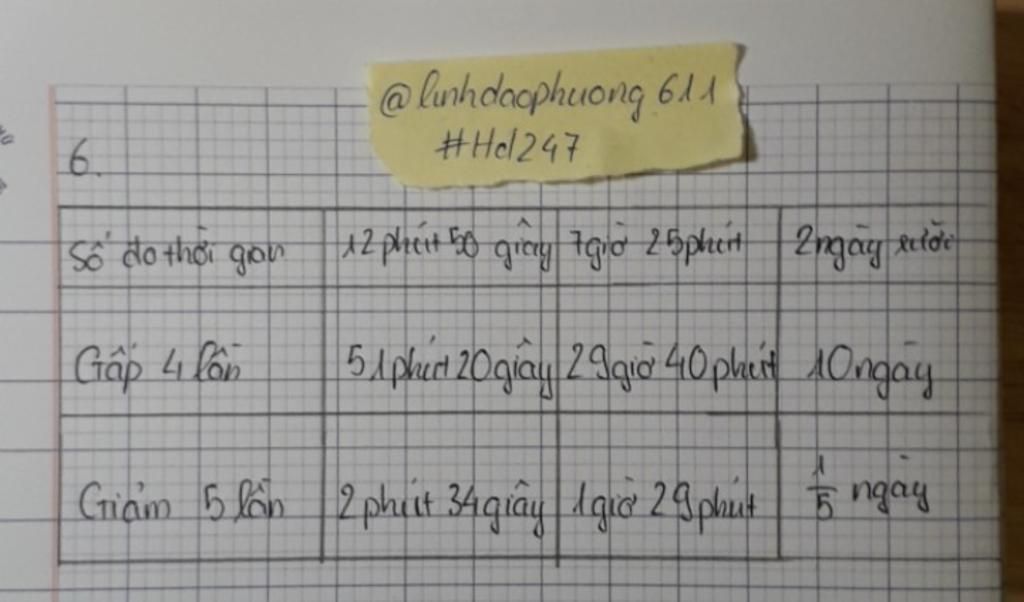 @linhdaophuong611
#Hd247
6.
Số đo thời gian 12 phút 50 giây 7 giờ 25 phút 2 ngày rưỡi
Gấp 4 lần 51 phút 20 giây 29 giờ 40 phút 10 ngày
Giảm 5 lần 2 phút 34 giây 1 giờ 29 phút 1/5 ngày